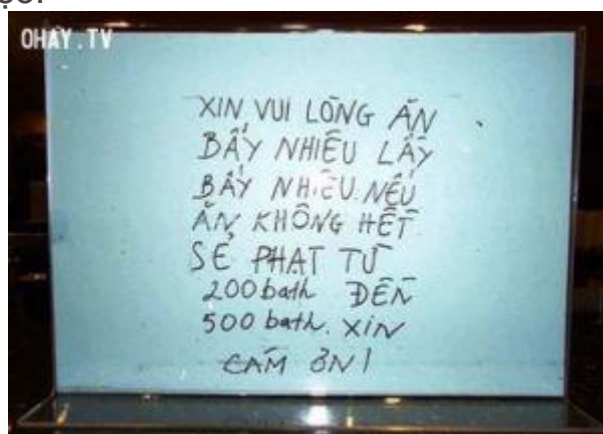 OHAY.TV
XIN VUI LÒNG ĂN
BẤY NHIÊU LẤY
BẤY NHIÊU. NẾU
ĂN KHÔNG HẾT
SẼ PHẠT TỪ
200 bath ĐẾN
500 bath. XIN
CÁM ƠN!